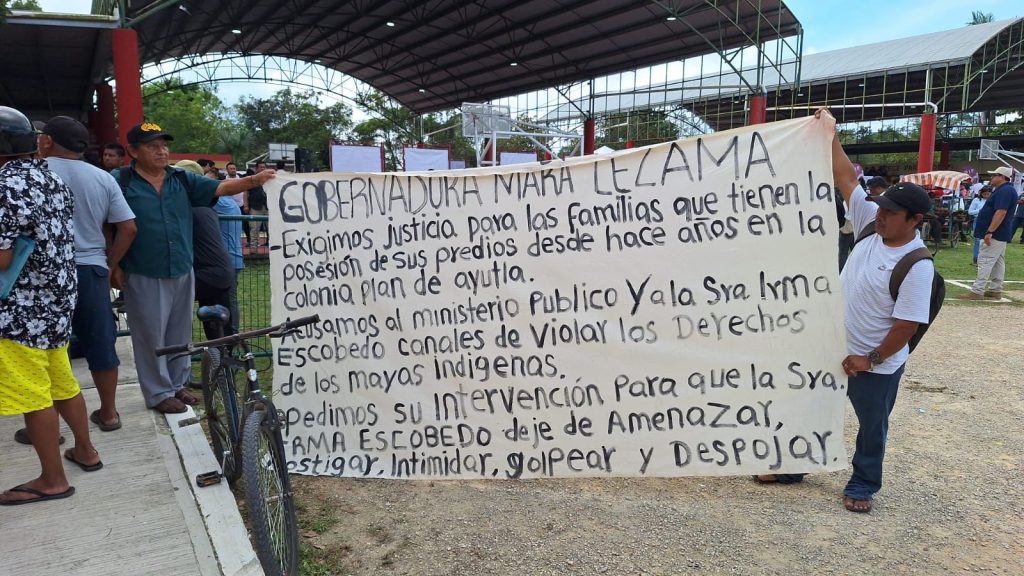 GOBERNADURA MARA LEZAMA
-Exigimos justicia para las familias que tienen la
posesión de sus predios desde hace años en la
colonia plan de ayutla.
Acusamos al ministerio Publico Y a la Sra Irma
Escobedo canales de Violar los Derechos
de los mayas indigenas.
epedimos su Intervención Para que la Sra.
IRMA ESCOBEDO deje de Amenazar,
ostigar, Intimidar, golpear y Despojar.